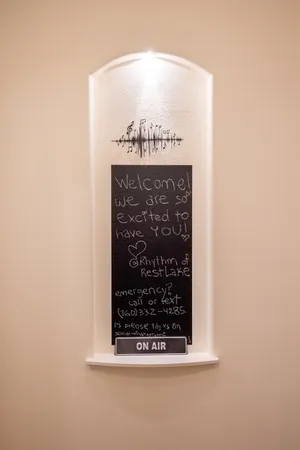 Welcome!
we are so
excited to
have YOU!
@Rhythm of
RestLake
emergency?
call or text
(760)332-4285
please us on
ON AIR